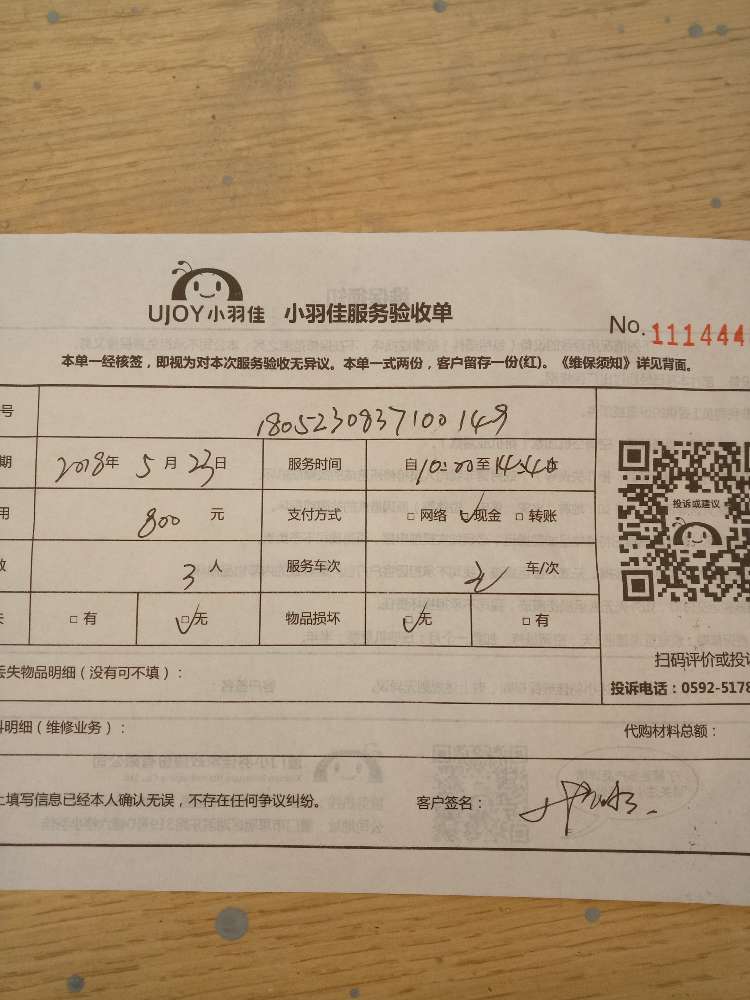 UJOY小羽佳 小羽佳服务验收单
No. 111444
本单一经核签，即视为对本次服务验收无异议。本单一式两份，客户留存一份(红)。《维保须知》详见背面。
号 1805230837100149
期 2018年 5月 23日 服务时间 自10:00至14:40
用 800 元 支付方式 □ 网络 ☑现金 □ 转账
数 3 人 服务车次 车/次
失 □ 有 ☑无 物品损坏 ☑无 □ 有
投诉或建议
扫码评价或投诉
投诉电话：0592-5178
丢失物品明细（没有可不填）：
料明细（维修业务）： 代购材料总额：
上填写信息已经本人确认无误，不存在任何争议纠纷。 客户签名：